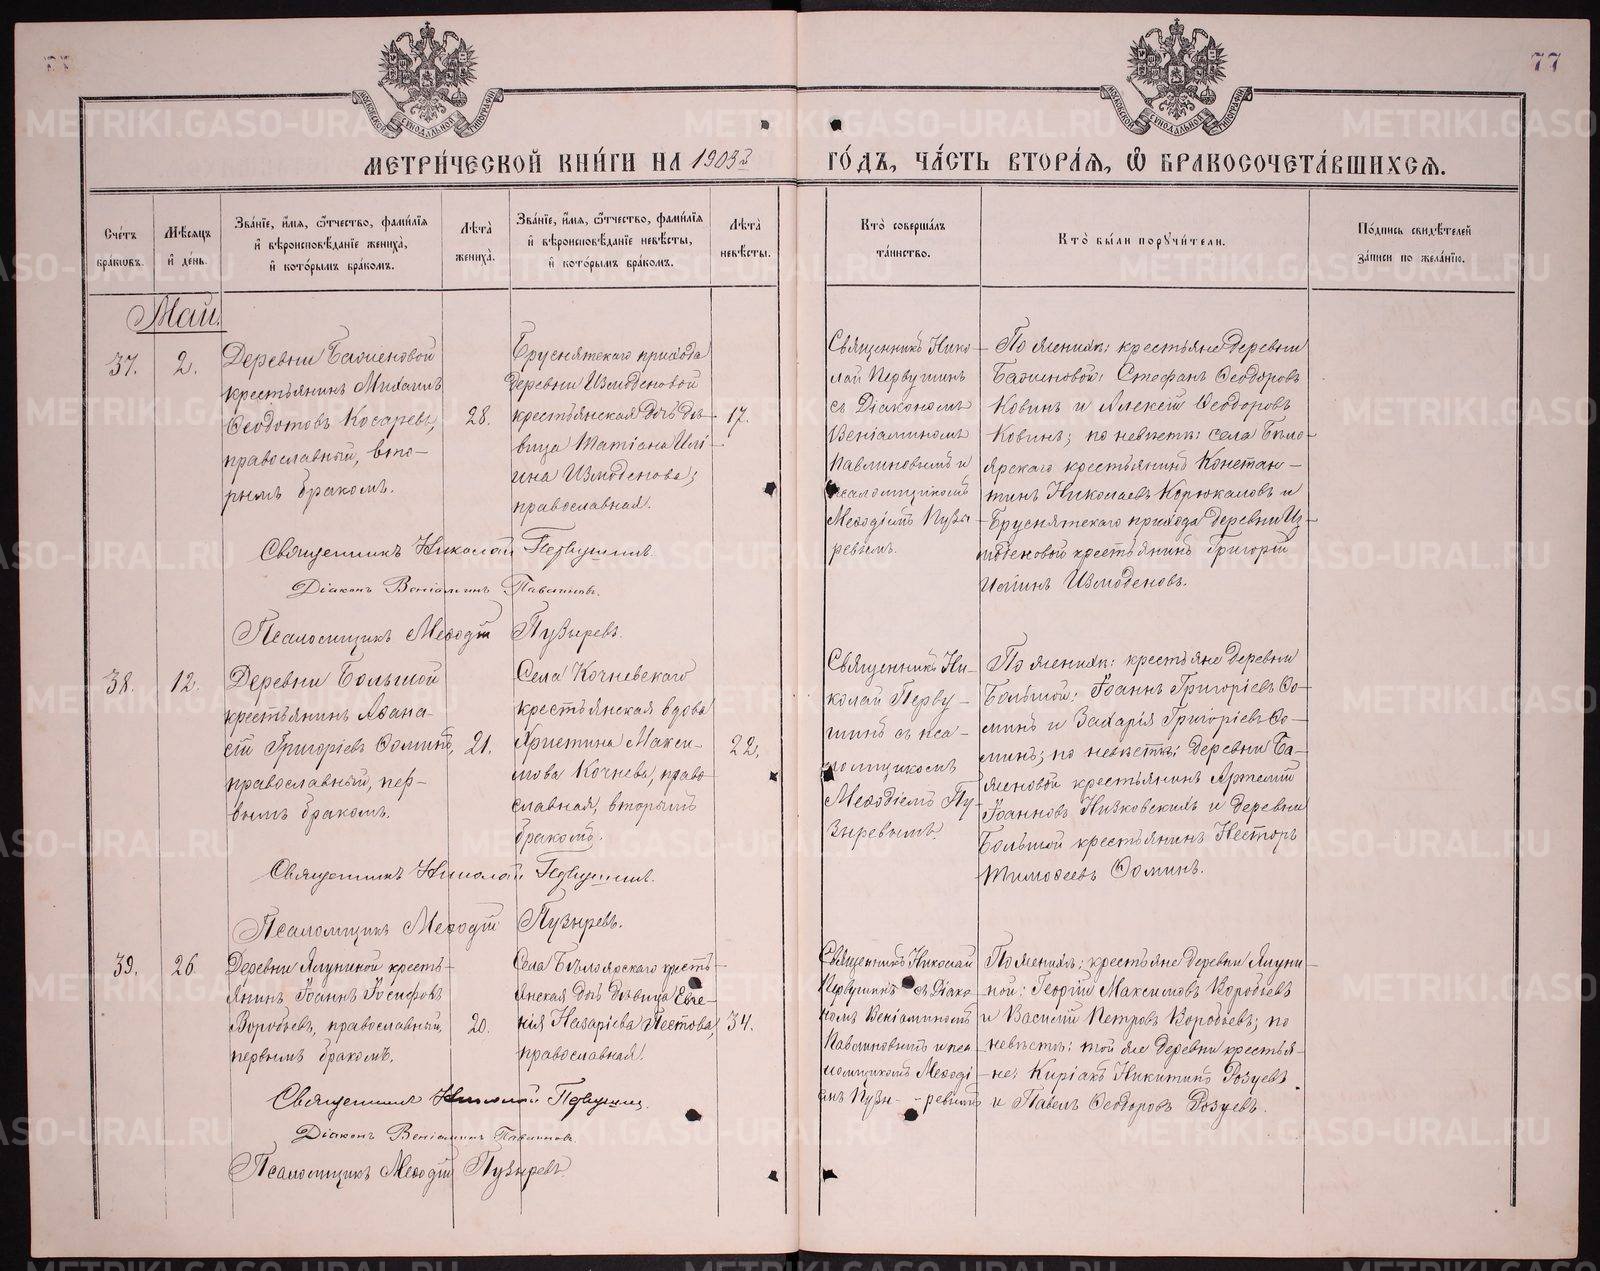 77
МЕТРИ́ЧЕСКОЙ КНИ́ГИ НА 1903й ГО́ДЪ, ЧА́СТЬ ВТОРА́Я, Ѡ҆ БРАКОСОЧЕТА́ВШИХСЯ.
Сче́тъ бра́ковъ.
Мѣ́сяцъ и҆ де́нь.
Зва́нїе, и҆́мя, ѻ҆́тчество, фами́лїя
и҆ вѣроисповѣ́данїе жениха̀,
и҆ кото́рымъ бра́комъ.
Лѣ́та̀ жениха̀.
Зва́нїе, и҆́мя, ѻ҆́тчество, фами́лїя
и҆ вѣроисповѣ́данїе невѣ́сты,
и҆ кото́рымъ бра́комъ.
Лѣ́та̀ невѣ́сты.
Кто̀ соверша́лъ
та́инство.
Кто̀ бы́ли поручи́тели.
По́дпись свидѣ́телей
за́писи по жела́нїю.
Май.
37.
2.
Деревни Баженовой
крестьянинъ Михаилъ
Ѳеодотовъ Косаревъ,
православный, вто-
рымъ бракомъ.
28.
Бруснятскаго прихода
деревни Измоденовой
крестьянская дочь дѣ-
вица Татіана Илі-
ина Измоденова;
православная.
17.
Священникъ Нико-
лай Первушинъ
съ Діакономъ
Веніаминомъ
Павлиновымъ и
псаломщикомъ
Меѳодіемъ Пузы-
ревымъ.
По женихѣ: крестьяне деревни
Баженовой: Стефанъ Ѳеодоровъ
Ковинъ и Алексій Ѳеодоровъ
Ковинъ; по невѣстѣ: села Бѣло-
ярскаго крестьянинъ Констан-
тинъ Николаевъ Корюкаловъ и
Бруснятскаго прихода деревни Из-
моденовой крестьянинъ Григорій
Иліинъ Измоденовъ.
Священникъ Николай Первушинъ.
Діаконъ Веніаминъ Павлиновъ.
Псаломщикъ Меѳодій Пузыревъ.
38.
12.
Деревни Большой
крестьянинъ Аѳана-
сій Григоріевъ Ѳоминъ,
православный, пер-
вымъ бракомъ.
21.
Села Кочневскаго
крестьянская вдова
Христина Макси-
мова Кочнева, право-
славная, вторымъ
бракомъ.
22.
Священникъ Ни-
колай Перву-
шинъ съ пса-
ломщикомъ
Меѳодіемъ Пу-
зыревымъ.
По женихѣ: крестьяне деревни
Большой: Іоаннъ Григоріевъ Ѳо-
минъ и Захарія Григоріевъ Ѳо-
минъ; по невѣстѣ: деревни Ба-
женовой крестьянинъ Артемій
Іоанновъ Низковскихъ и деревни
Большой крестьянинъ Несторъ
Тимоѳеевъ Ѳоминъ.
Священникъ Николай Первушинъ.
Псаломщикъ Меѳодій Пузыревъ.
39.
26.
Деревни Ялуниной кресть-
янинъ Іоаннъ Іосифовъ
Воробьевъ, православный,
первымъ бракомъ.
20.
Села Бѣлоярскаго кресть-
янская дочь дѣвица Евге-
нія Назаріева Пестова,
православная.
34.
Священникъ Николай
Первушинъ съ Діако-
номъ Веніаминомъ
Павлиновымъ и пса-
ломщикомъ Меѳоді-
емъ Пузы- -ревымъ
По женихѣ: крестьяне деревни Ялуни-
ной: Георгій Максимовъ Воробьевъ
и Василій Петровъ Воробьевъ; по
невѣстѣ: той же деревни крестья-
не: Киріакъ Никитинъ Розуевъ
и Павелъ Ѳеодоровъ Розуевъ.
Священникъ Николай Первушинъ.
Діаконъ Веніаминъ Павлиновъ.
Псаломщикъ Меѳодій Пузыревъ.
METRIKI.GASO-URAL.RU